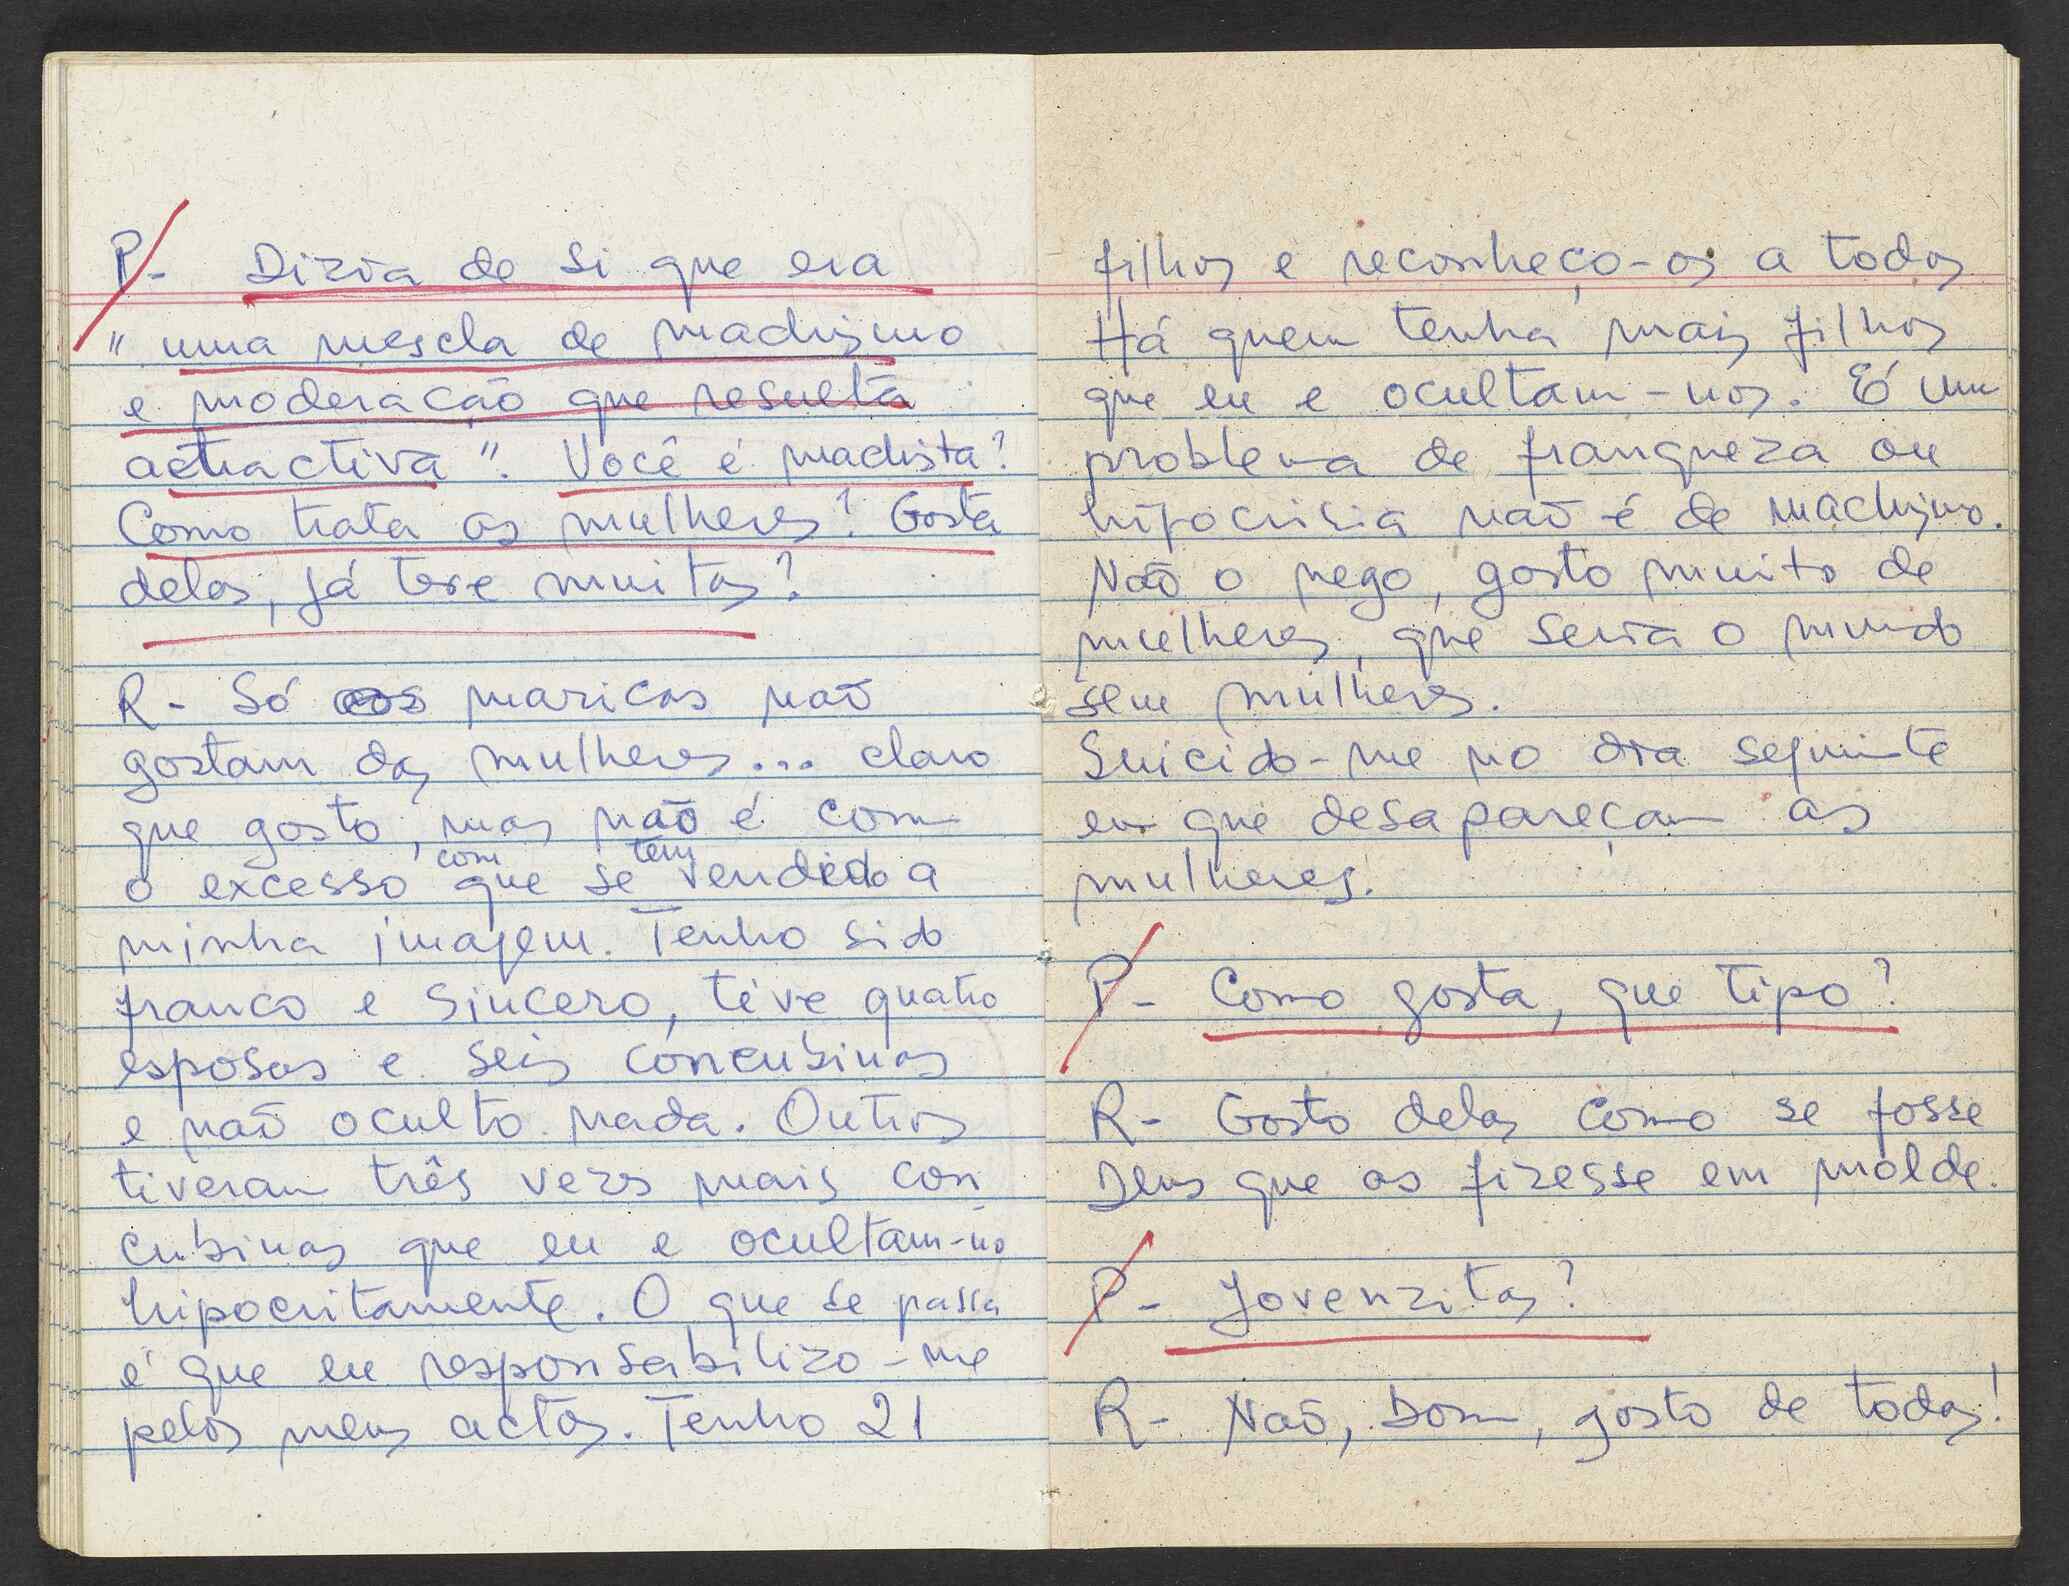 P- Dizia de si que era
" uma mescla de machismo
e moderação que resulta
actractiva". Você é machista?
Como trata as mulheres? Gosta
delas, já teve muitas?
R- Só os maricas não
gostam das mulheres... claro
que gosto, mas não é com
o excesso com que se tem vendido a
minha imagem. Tenho sido
franco e sincero, téve quatro
esposas e seis concubinas
e não oculto nada. Outros
tiveram três vezes mais con
cubinas que eu e ocultam-no
hipocritamente. O que se passa
é que eu responsabilizo-me
pelos meus actos. Tenho 21
filhos e reconheço-os a todos
Há quem tenha mais filhos
que eu e ocultam-nos. É um
problema de franqueza ou
hipocrisia não é de machismo.
Não o nego, gosto muito de
mulheres, que seria o mundo
sem mulheres.
Suicido-me no dia seguinte
em que desapareçam as
mulheres.
P- Como gosta, que tipo?
R- Gosto delas como se fosse
Deus que as fizesse em molde.
P- Jovenzitas?
R- Não, Dom, gosto de todas!